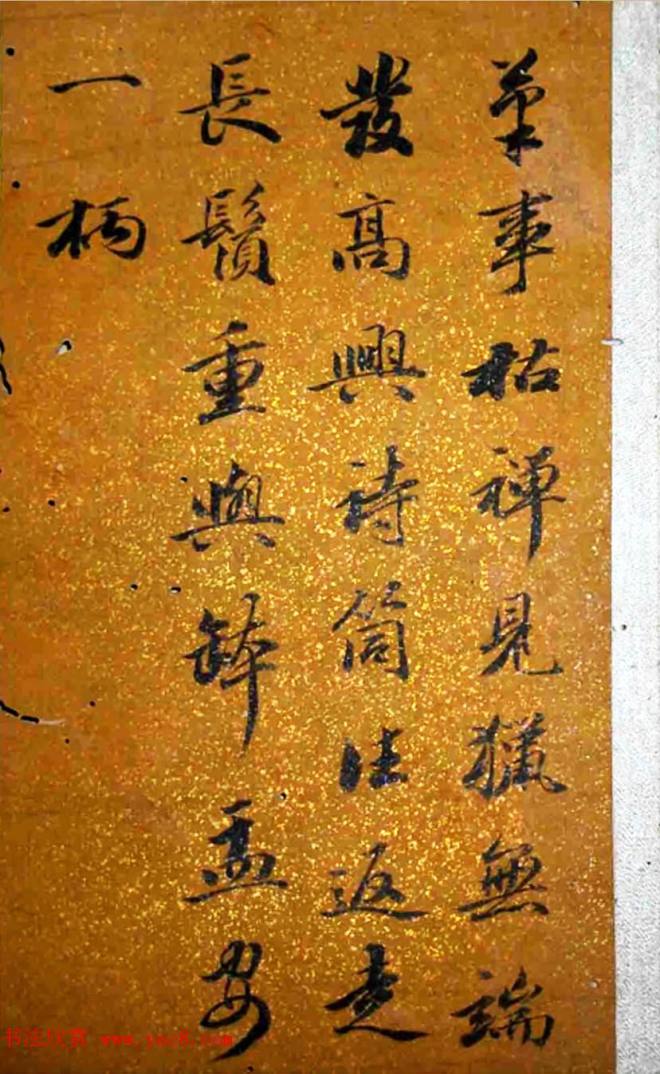 事枯禪見獵無端
發高興詩筒往返走
長鬚重與缽盂安
一柄
书法欣赏 www.yac8.com